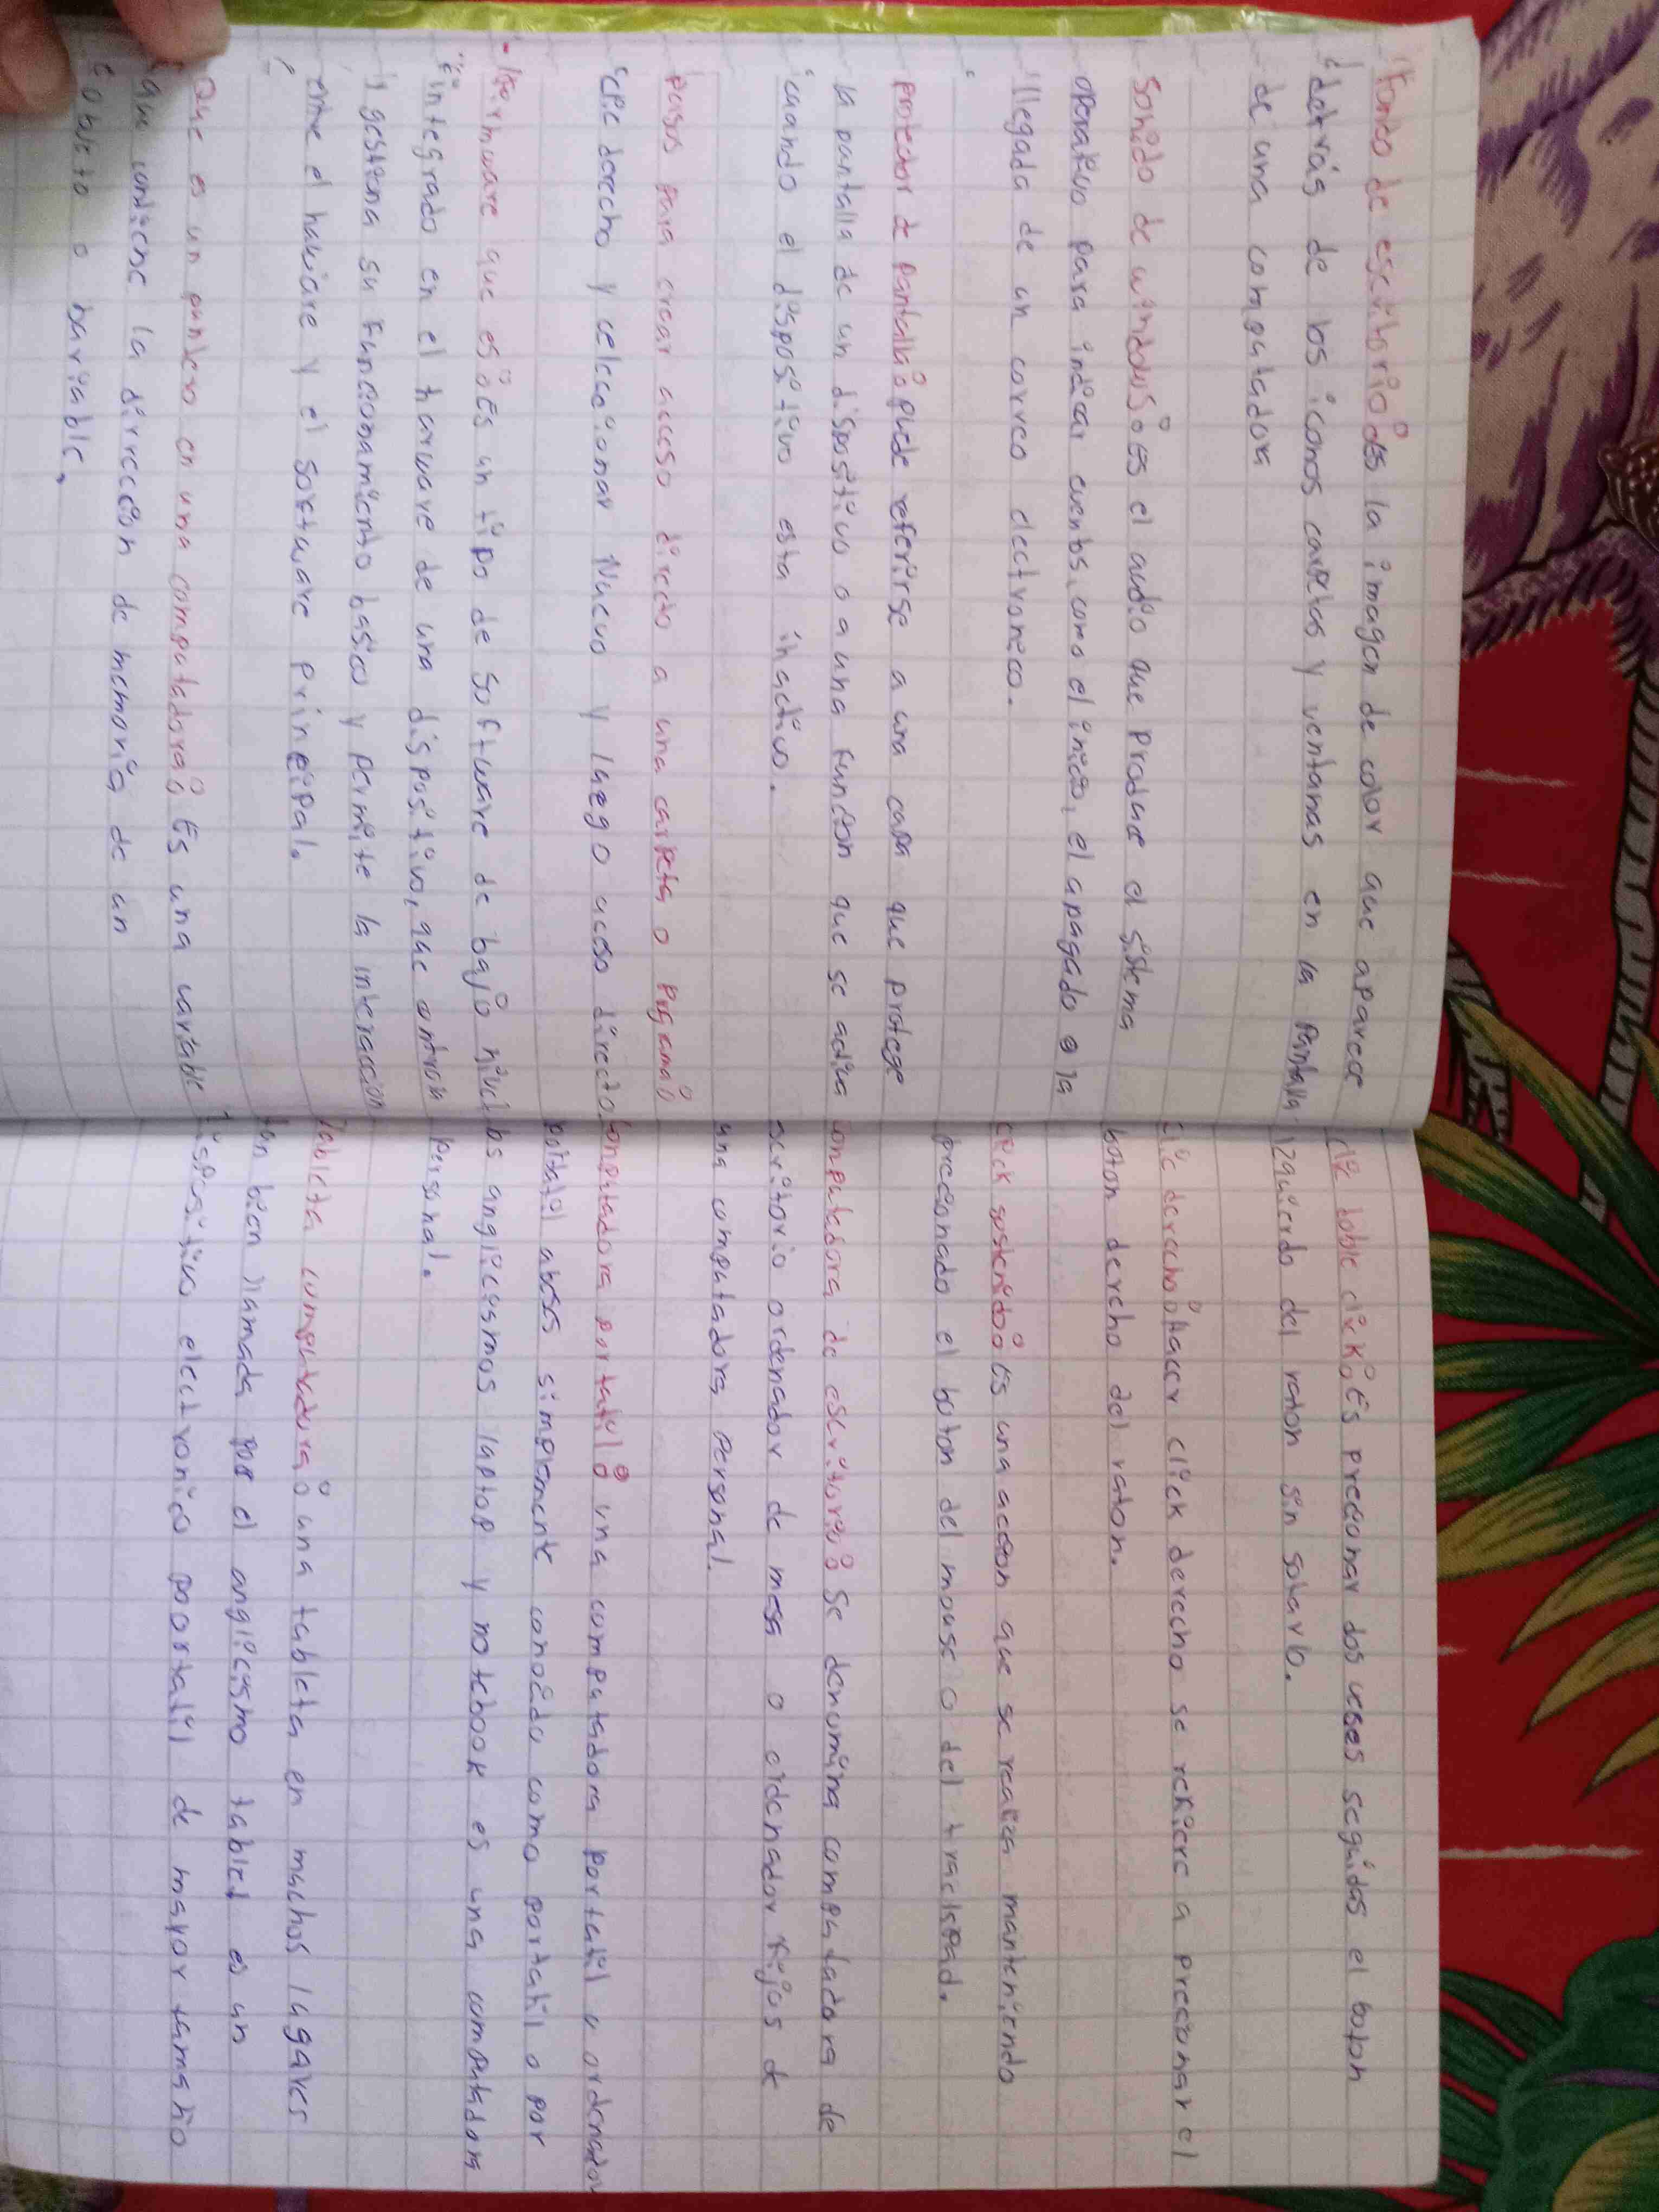 Fondo de escritorio: es la imagen de color que aparece
detrás de los iconos carpetas y ventanas en la pantalla
de una computadora
Sonido de windows: es el audio que produce el sistema
operativo para indicar eventos, como el inicio, el apagado o la
llegada de un correo electroneco.
protedor de pantalla: puede referirse a una capa que protege
la pantalla de un dispositivo o a una funcion que se activa
cuando el dispositivo esta inactivo.
pasos para crear acceso directo a una carpeta o
clic derecho y seleccionar Nuevo y luego acceso directo.
firmware que es: Es un tipo de software de bajo nivel
integrado en el harware de una dispositivo, que
y gestiona su funcionamiento basico y permite la interaccion
entre el harware y el software principal.
Que es un puntero en una computadora: Es una variable
que contiene la direccion de memoria de un
objeto o bariable.
clic doble click: Es precionar dos veses seguidas el boton
izquierdo del raton sin soltarlo.
clic derecho: Hacer click derecho se refiere a precionar el
boton derecho del raton.
click sostenido: Es una accion que se realiza manteniendo
precionado el boton del mouse o del
computadora de escritorio: Se denomina computadora de
escritorio ordenador de mesa o ordenador fijos de
una computadora personal.
computadora portatil: una computadora portatil u ordenador
portatil abeses simplemente conosido como portatil o por
los anglicismos laptop y notebook es una computadora
personal.
Tableta computadora: una tableta en muchos lugares
tan bien llamada por el anglicismo tablet es un
dispositivo electronico poortatil de mayor tamaño